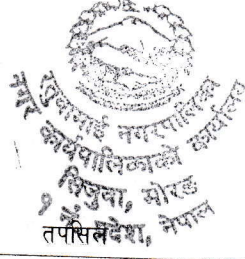 रतुवामाई नगरपालिका
नगर कार्यपालिकाको कार्यालय
सिजुवा, मोरङ
१ नं प्रदेश, नेपाल
तपसिल